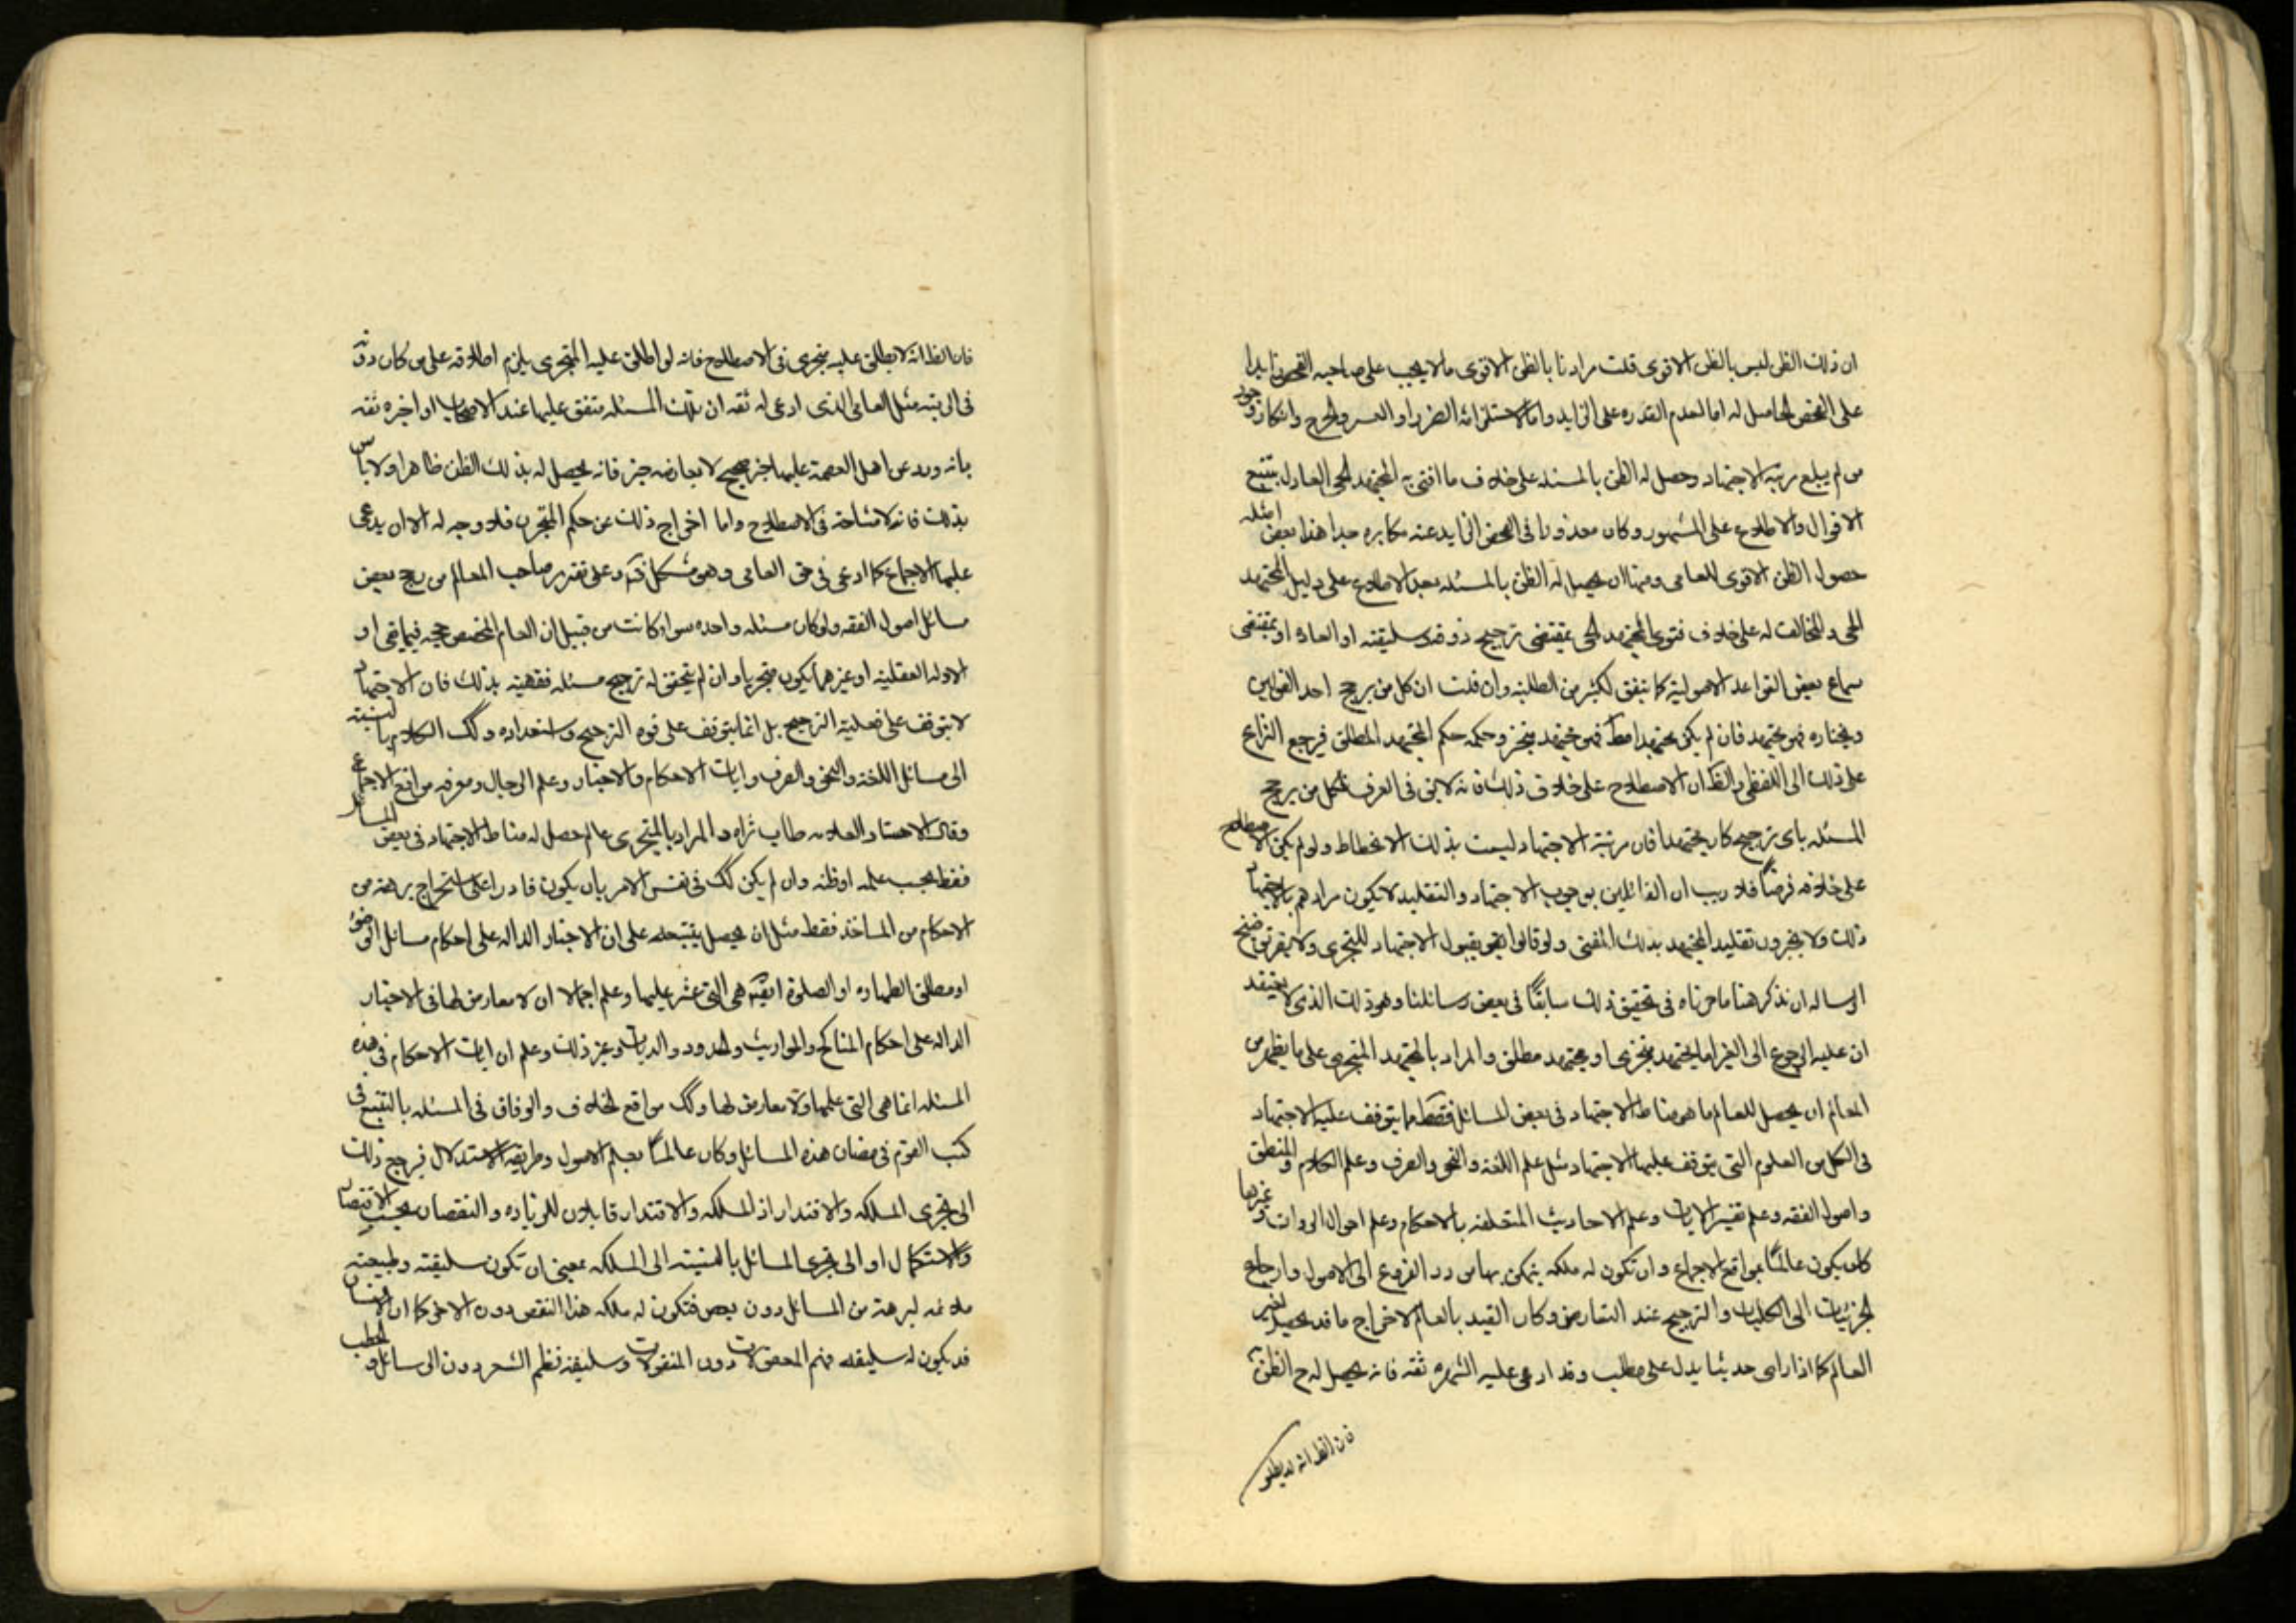 ان ذلك الظن ليس بالظن الاقوى قلت مرادنا بالظن الاقوى ما لا يجب على صاحبه الفحص زايدا
على الفحص الحاصل له اما لعدم القدره على الزايد واما لاستلزامه الضرر او العسر والحرج وانكار وجود
من لم يبلغ مرتبة الاجتهاد وحصل له الظن بالمسئله على خلاف ما افتى به المجتهد الحى العادل بتتبع
الاقوال والاطلاع على المشهور وكان معذورا فى الفحص الزايد عنه مكابره جدا هذا بعض امثله
حصول الظن الاقوى للعامى ومنها ان يحصل له الظن بالمسئله بعد الاطلاع على دليل المجتهد
الحى والمخالف له على خلاف فتوى المجتهد الحى بمقتضى ترجيح ذوقه وسليقته او العاده او بمقتضى
سماع بعض القواعد الاصولية كما يتفق لكثير من الطلبة وان قلت ان كل من يرجح احد القولين
ويختاره فهو مجتهد فان لم يكن مجتهدا مطلقا فهو مجتهد متجز وحكمه حكم المجتهد المطلق فيرجع النزاع
على ذلك الى اللفظى والظ ان الاصطلاح على خلاف ذلك فانه لا يق فى العرف لكل من يرجح
المسئله باى ترجيح كان مجتهدا فان مرتبة الاجتهاد ليست بذلك الانحطاط ولو لم يكن الاصطلاح
على خلافه فرضا فلا ريب ان القائلين بوجوب الاجتهاد والتقليد لا يكون مرادهم بالاجتهاد
ذلك ولا يجوزون تقليد المجتهد بذلك المعنى ولو قالوا بقبول الاجتهاد للتجزى
الرساله ان نذكر هنا ما حررناه فى تحقيق ذلك سابقا فى بعض رسائلنا وهو ذلك الذى لا يعتقد
ان عليه الرجوع الى الغير اما مجتهد متجزى او مجتهد مطلق والمراد بالمجتهد المتجزى على ما يظهر من
المعالم ان يحصل للعالم ما هو مناط الاجتهاد فى بعض المسائل فقط ما يتوقف عليه الاجتهاد
فى الكل من العلوم التى يتوقف عليها الاجتهاد مثل علم اللغة والنحو والصرف وعلم الكلام والمنطق
واصول الفقه وعلم تفسير الايات وعلم الاحاديث المتعلقه بالاحكام وعلم احوال الروات وغيرها
كان يكون عالما بمواقع الاجماع وان تكون له ملكه يتمكن بها من رد الفروع الى الاصول وارجاع
الجزئيات الى الكليات والترجيح عند التعارض وكان القيد بالعالم لاخراج ما قد يحصل لغير
العالم كما اذا راى حديثا يدل على مطلب وقد ادعى عليه الشهره ثقه فانه يحصل له ح الظن به
فان الظ انه لا يطلق
فان الظ انه لا يطلق عليه متجزى فى الاصطلاح فانه لو اطلق عليه المتجزى يلزم اطلاقه على من كان دونه
فى الرتبة مثل العامى الذى ادعى له ثقه ان تلك المسئله متفق عليها عند الاصحاب او اخبره ثقه
بانه ورد عن اهل العصمة عليها خبر صحيح لا يعارضه خبر فانه يحصل له بذلك الظن ظاهرا ولا باس
بذلك فانه لا مشاحة فى الاصطلاح واما اخراج ذلك عن حكم المتجزى فلا وجه له الا ان يدعى
عليها الاجماع كما ادعى فى حق العامى وهو مشكل وعلى تقرير صاحب المعالم من رجح بعض
مسائل اصول الفقه ولو كان مسئله واحده سواء كانت من قبيل ان العام المخصص حجه فيما بقى او
الادله العقلية او غيرهما يكون متجزيا وان لم يتحقق له ترجيح مسئله فقهية بذلك فان الاجتهاد
لا يتوقف على فعلية الترجيح بل انما يتوقف على قوه الترجيح واستعداده وكك الكلام بالنسبة
الى مسائل اللغة والنحو والصرف وايات الاحكام والاخبار وعلم الرجال ومعرفه مواقع الاجماع
وقال الاستاد العلامه طاب ثراه والمراد بالمتجزى عالم حصل له مناط الاجتهاد فى بعض المسائل
فقط بحسب علمه او ظنه وان لم يكن كك فى نفس الامر بان يكون قادرا على استخراج برهة من
الاحكام من الماخذ فقط مثل ان يحصل بتتبعه على ان الاخبار الداله على احكام مسائل الوضوء
او مطلق الطهاره او الصلوة هى التى عثر عليها وعلم اجمالا ان لا معارض لها فى الاخبار
الداله على احكام المناكح والمواريث والحدود والديات وغير ذلك وعلم ان ايات الاحكام فى هذه
المسئله انما هى التى علمها ولا معارض لها وكك مواقع الخلاف والوفاق فى المسئله بالتتبع فى
كتب القوم فى مضان هذه المسائل وكان عالما بعلم الاصول وطريقة الاستدلال فيرجع ذلك
الى تجزى الملكه والاقتدار اذ الملكه والاقتدار قابلان للزياده والنقصان بحسب الانتقاص
والاستكمال او الى تجزى المسائل بالنسبة الى الملكه بمعنى ان تكون سليقته وطبيعته
ملائمه لبرهة من المسائل دون بعض فتكون له ملكه هذا البعض دون الاخر كما ان الانسان
قد يكون له سليقه فهم المعقولات دون المنقولات وسليقه نظم الشعر دون الرسائل والخطب